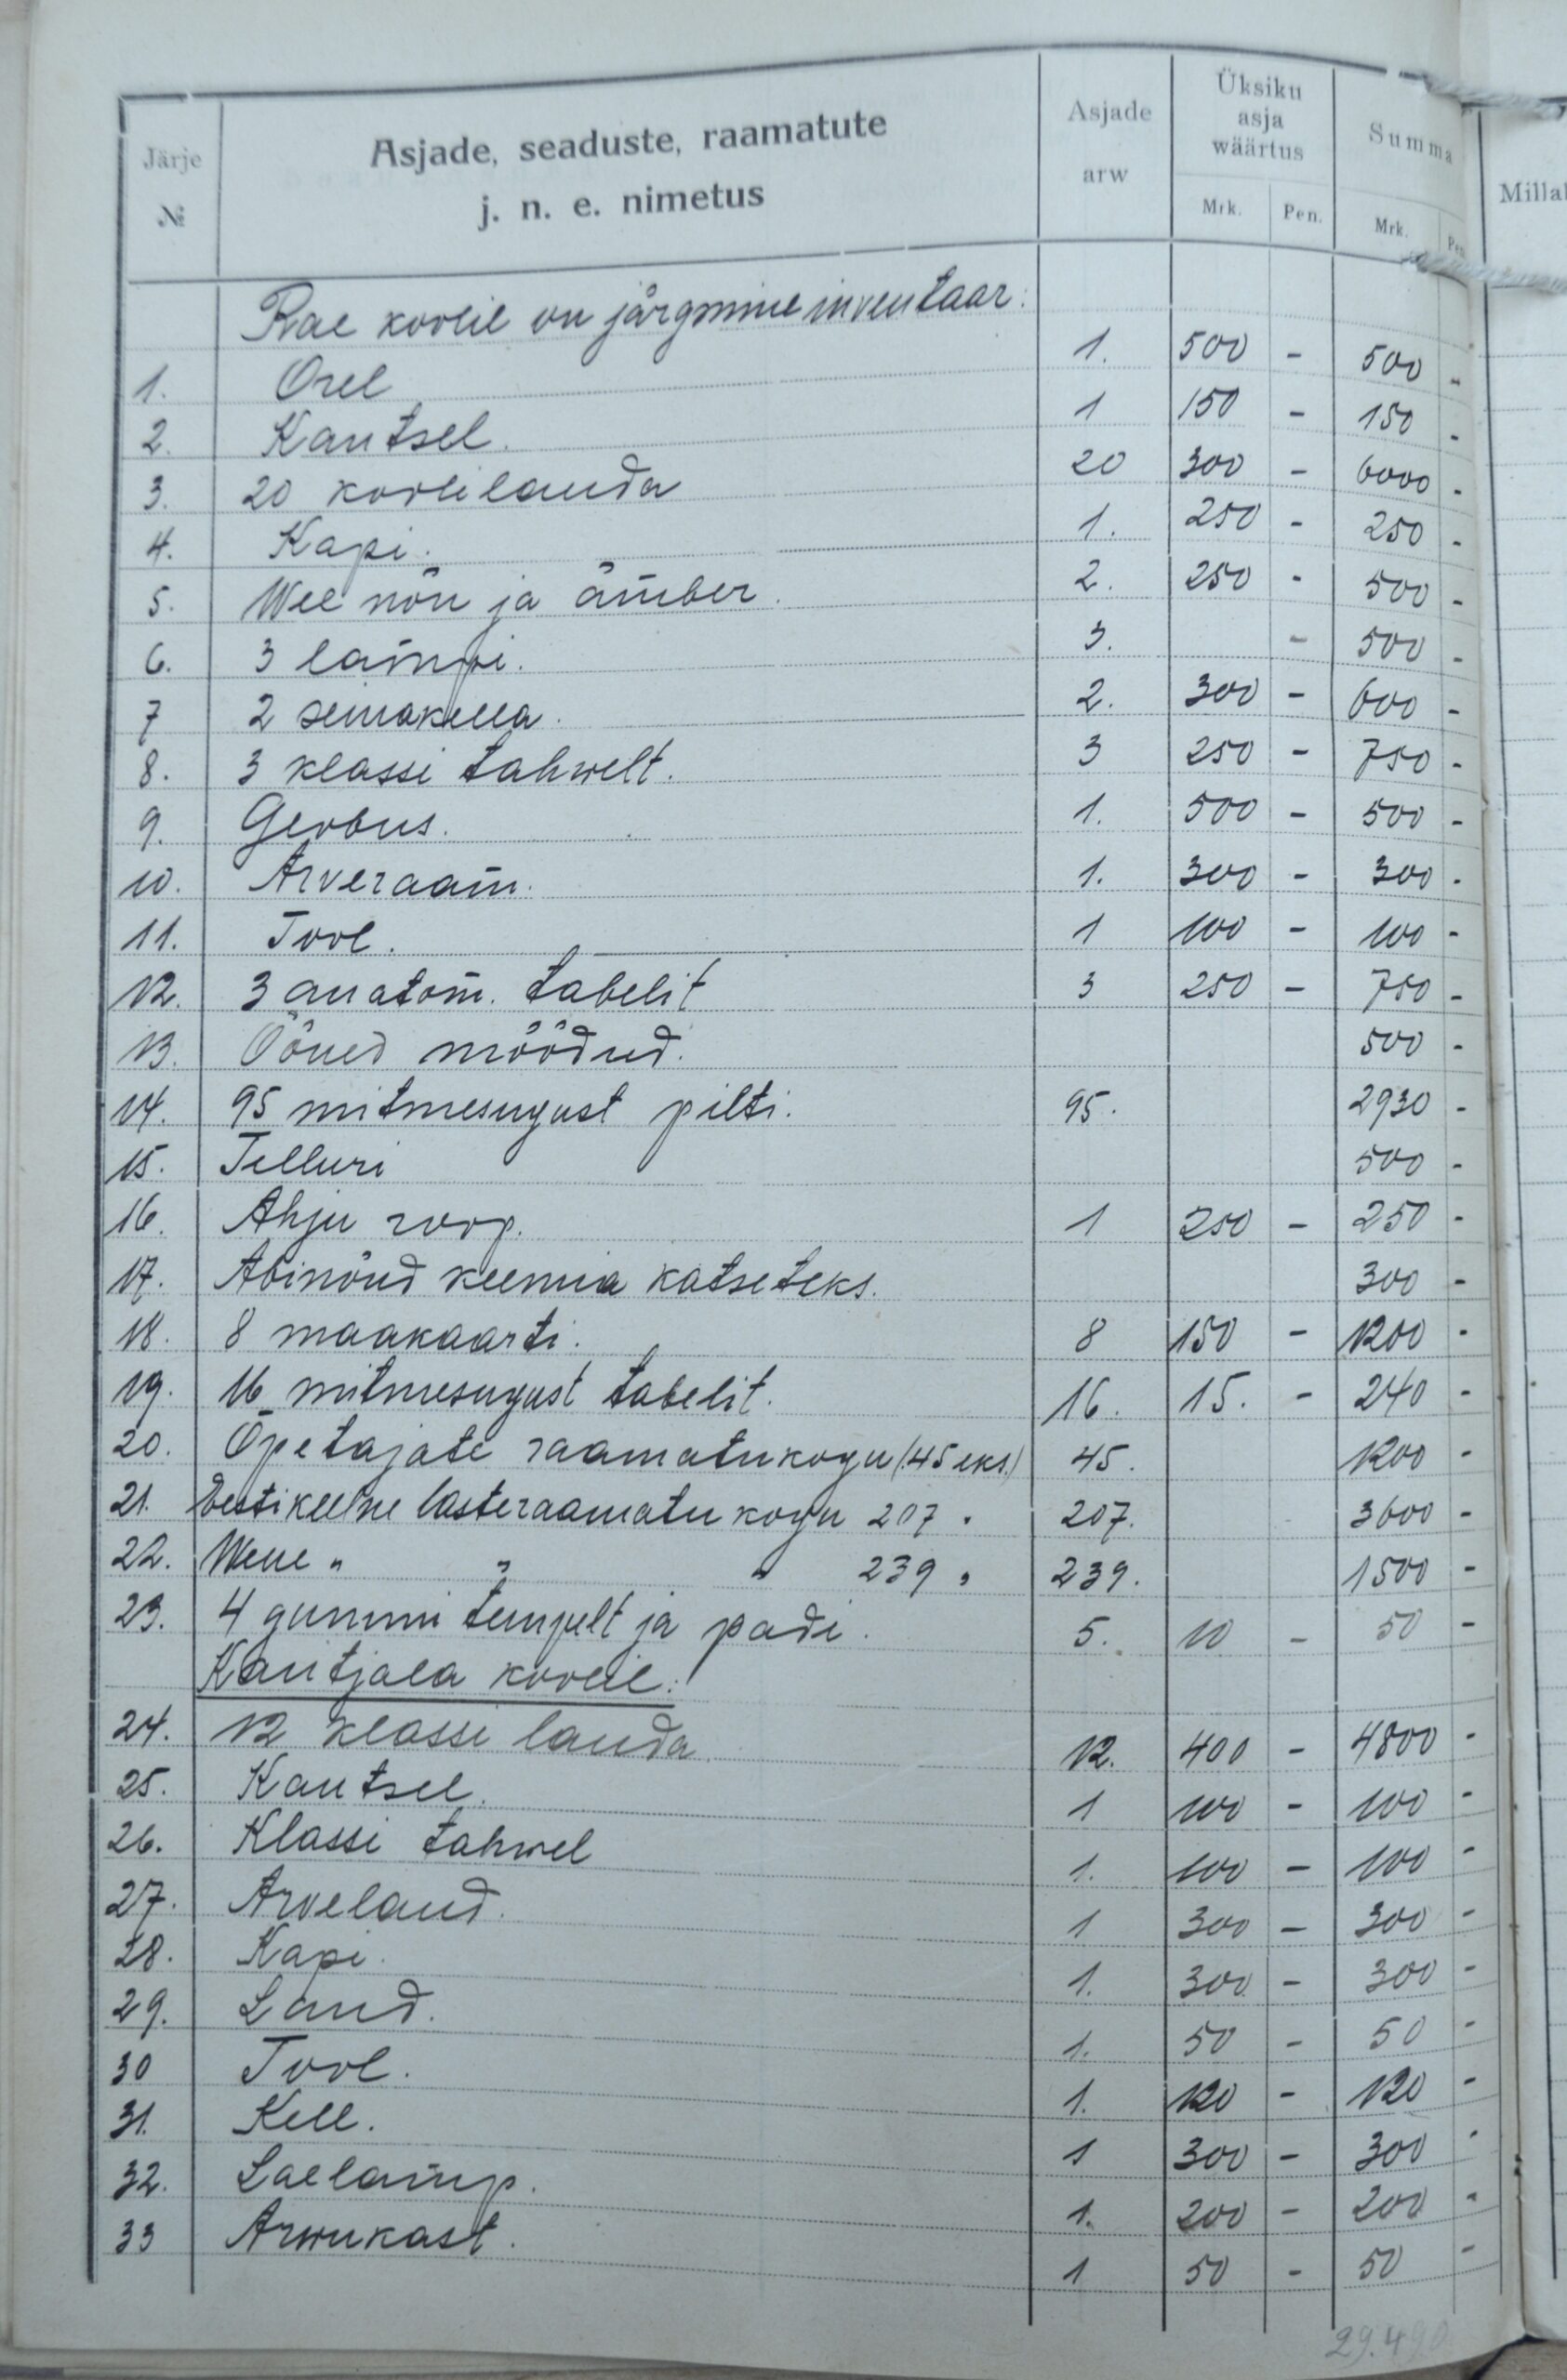 Järje № Asjade, seaduste, raamatute j. n. e. nimetus Asjade arw Üksiku asja wäärtus Mrk. Pen. Summa Mrk. Pen.
Millal
Rae koolil on järgmine inventaar:
1. Orel 1. 500 - 500 -
2. Kantsel. 1 150 - 150 -
3. 20 koolilauda 20 300 - 6000 -
4. Kapi. 1. 250 - 250 -
5. Wee nõu ja ämber. 2. 250 - 500 -
6. 3 lampi. 3. - 500 -
7 2 seinakella. 2. 300 - 600 -
8. 3 klassi tahwelt. 3 250 - 750 -
9. Geobus. 1. 500 - 500 -
10. Arveraam. 1. 300 - 300 -
11. Tool. 1 100 - 100 -
12. 3 anatom. tabelit 3 250 - 750 -
13. Õõned mõõdud. 500 -
14. 95 mitmesugust pilti. 95. 2930 -
15. Telluri 500 -
16. Ahju roop. 1 250 - 250 -
17. Abinõud keemia katseteks. 300 -
18. 8 maakaarti. 8 150 - 1200 -
19. 16 mitmesugust tabelit. 16. 15. - 240 -
20. Õpetajate raamatukogu (45 eks.) 45. 1200 -
21. Eestikeelne lasteraamatu kogu 207 " 207. 3600 -
22. Wene " " " 239 " 239. 1500 -
23. 4 gummi tempelt ja padi. 5. 10 - 50 -
Kautjala koolil:
24. 12 klassi lauda. 12. 400 - 4800 -
25. Kantsel. 1 100 - 100 -
26. Klassi tahwel 1. 100 - 100 -
27. Arvelaud. 1 300 - 300 -
28. Kapi. 1. 300 - 300 -
29. Laud. 1. 50 - 50 -
30 Tool. 1. 120 - 120 -
31. Kell. 1 300 - 300 -
32. Laelamp. 1. 200 - 200 -
33 Arwukast. 1 50 - 50 -
29.490